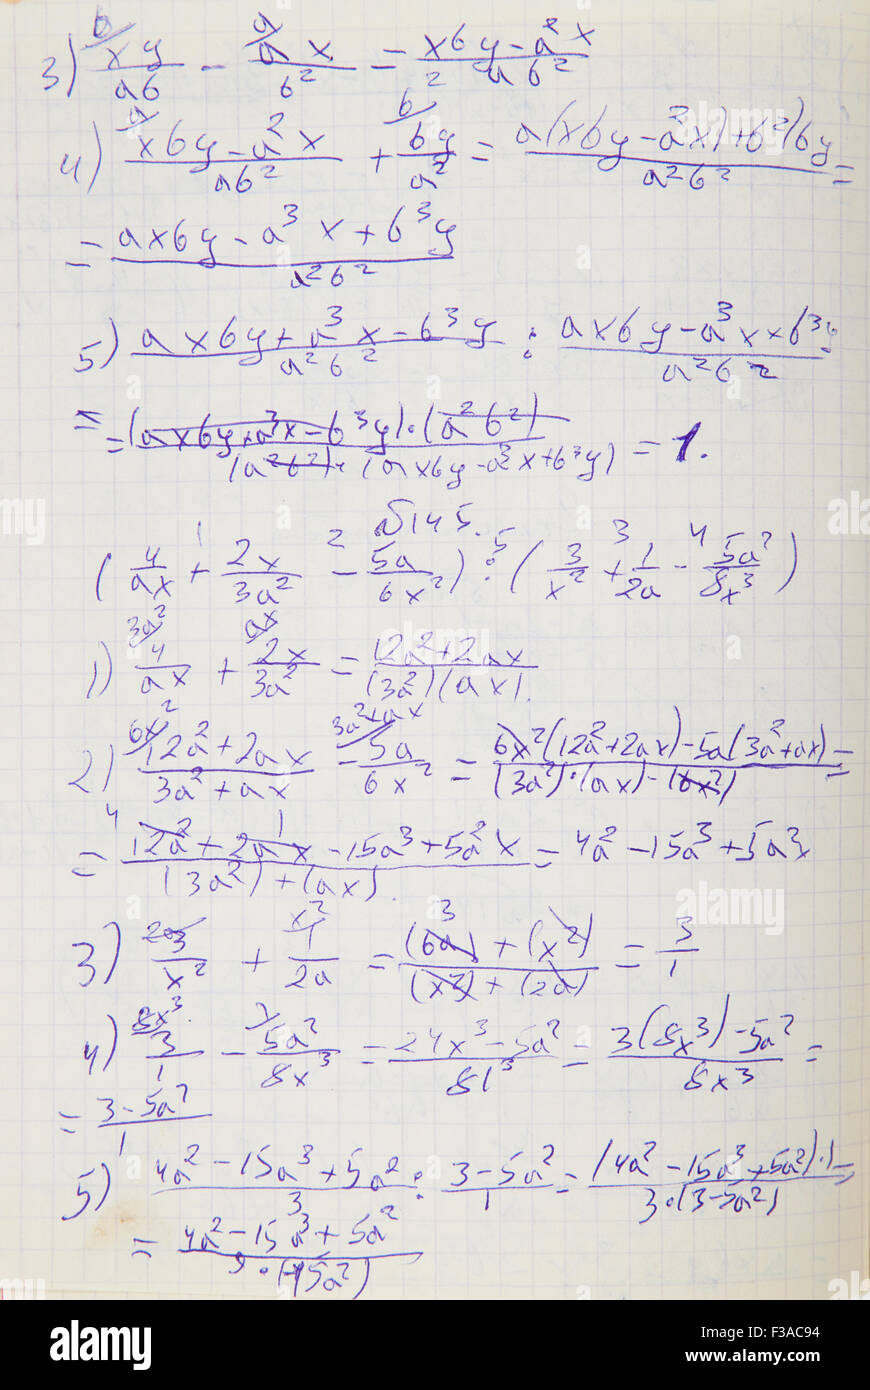 3) xy/ab - ax/b² = xby-a²x/ab²
4) xby-a²x/ab² + by/a² = a(xby-a³x)+b²)by/a²b² =
= axby-a³x+b³y/a²b²
5) axby+a³x-b³y/a²b² : axby-a³x+b³y/a²b²
= =(axby+a³x-b³y)·(a²b²)/(a²b²)·(axby-a³x+b³y) = 1.
№145.
(4/ax + 2x/3a² - 5a/6x²) : (3/x² + 1/2a - 5a²/8x³)
1) 4/ax + 2x/3a² = 12a²+2ax/(3a²)(ax).
2) 12a²+2ax/3a²+ax - 5a/6x² = 6x²(12a²+2ax)-5a(3a²+ax)/(3a²)·(ax)-(6x²) =
= 12a²+2ax-15a³+5a²x/(3a²)+(ax) = 4a²-15a³+5a²x
3) 3/x² + 1/2a = (6a)+(x²)/(x²)+(2a) = 3/1
4) 3/1 - 5a²/8x³ = 24x³-5a²/81³ = 3(8x³)-5a²/8x³ =
= 3-5a²/1
5) 4a²-15a³+5a²/3 : 3-5a²/1 = (4a²-15a³+5a²)·1/3·(3-5a²) =
= 4a²-15a³+5a²
alamy
Image ID: F3AC94
www.alamy.com